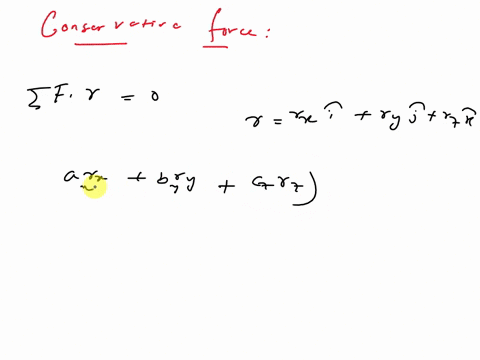 Conservative force:
ΣF. r = 0
r = rx î + ry ĵ + rz k̂
a rx + by ry + cz rz)